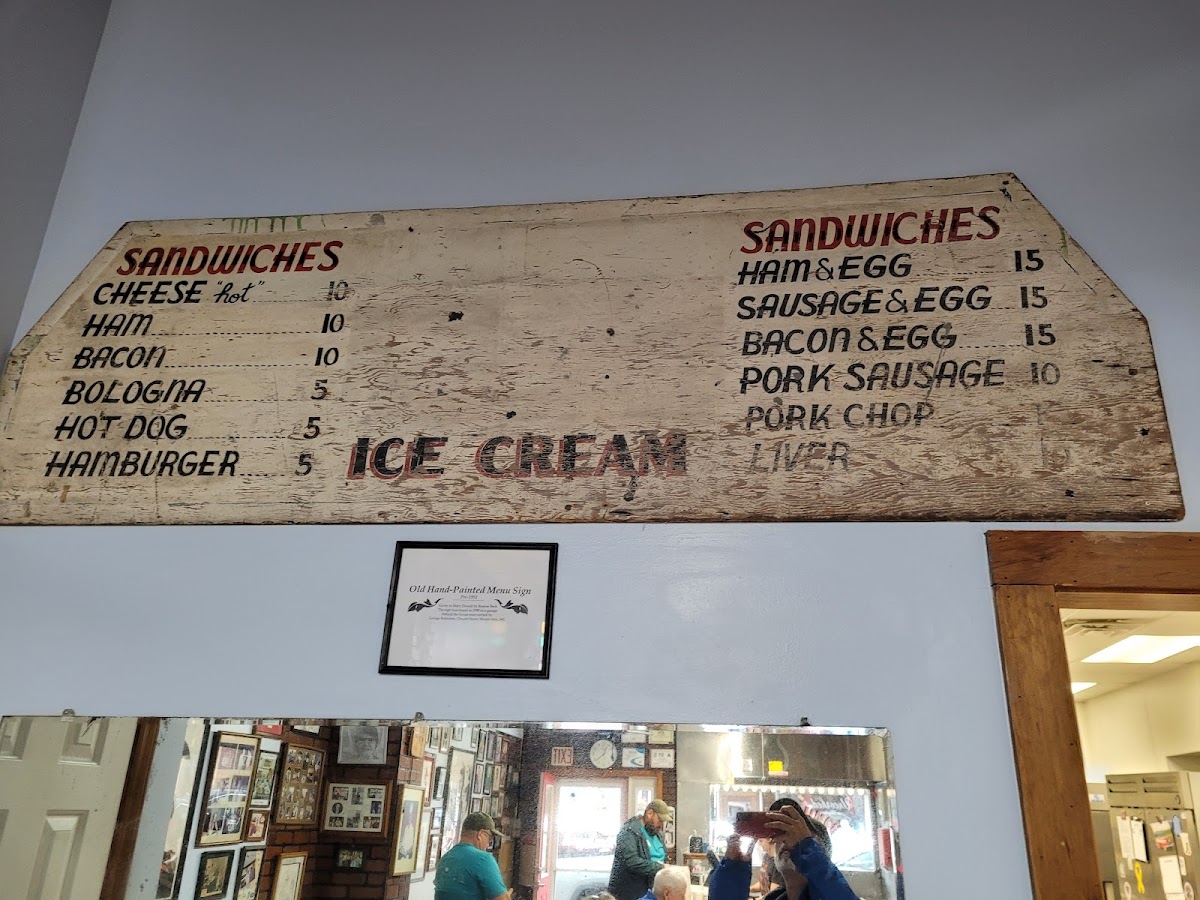 SANDWICHES
CHEESE "hot" 10
HAM 10
BACON 10
BOLOGNA 5
HOT DOG 5
HAMBURGER 5
ICE CREAM
SANDWICHES
HAM & EGG 15
SAUSAGE & EGG 15
BACON & EGG 15
PORK SAUSAGE 10
PORK CHOP
LIVER
Old Hand-Painted Menu Sign
EXIT